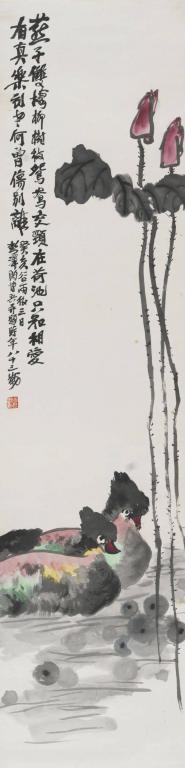 燕子雙雙棲柳樹鴛鴦交頸在荷池只知相愛
有真樂到老何曾傷別離
癸亥谷雨後三日
彭澤
時年八十三